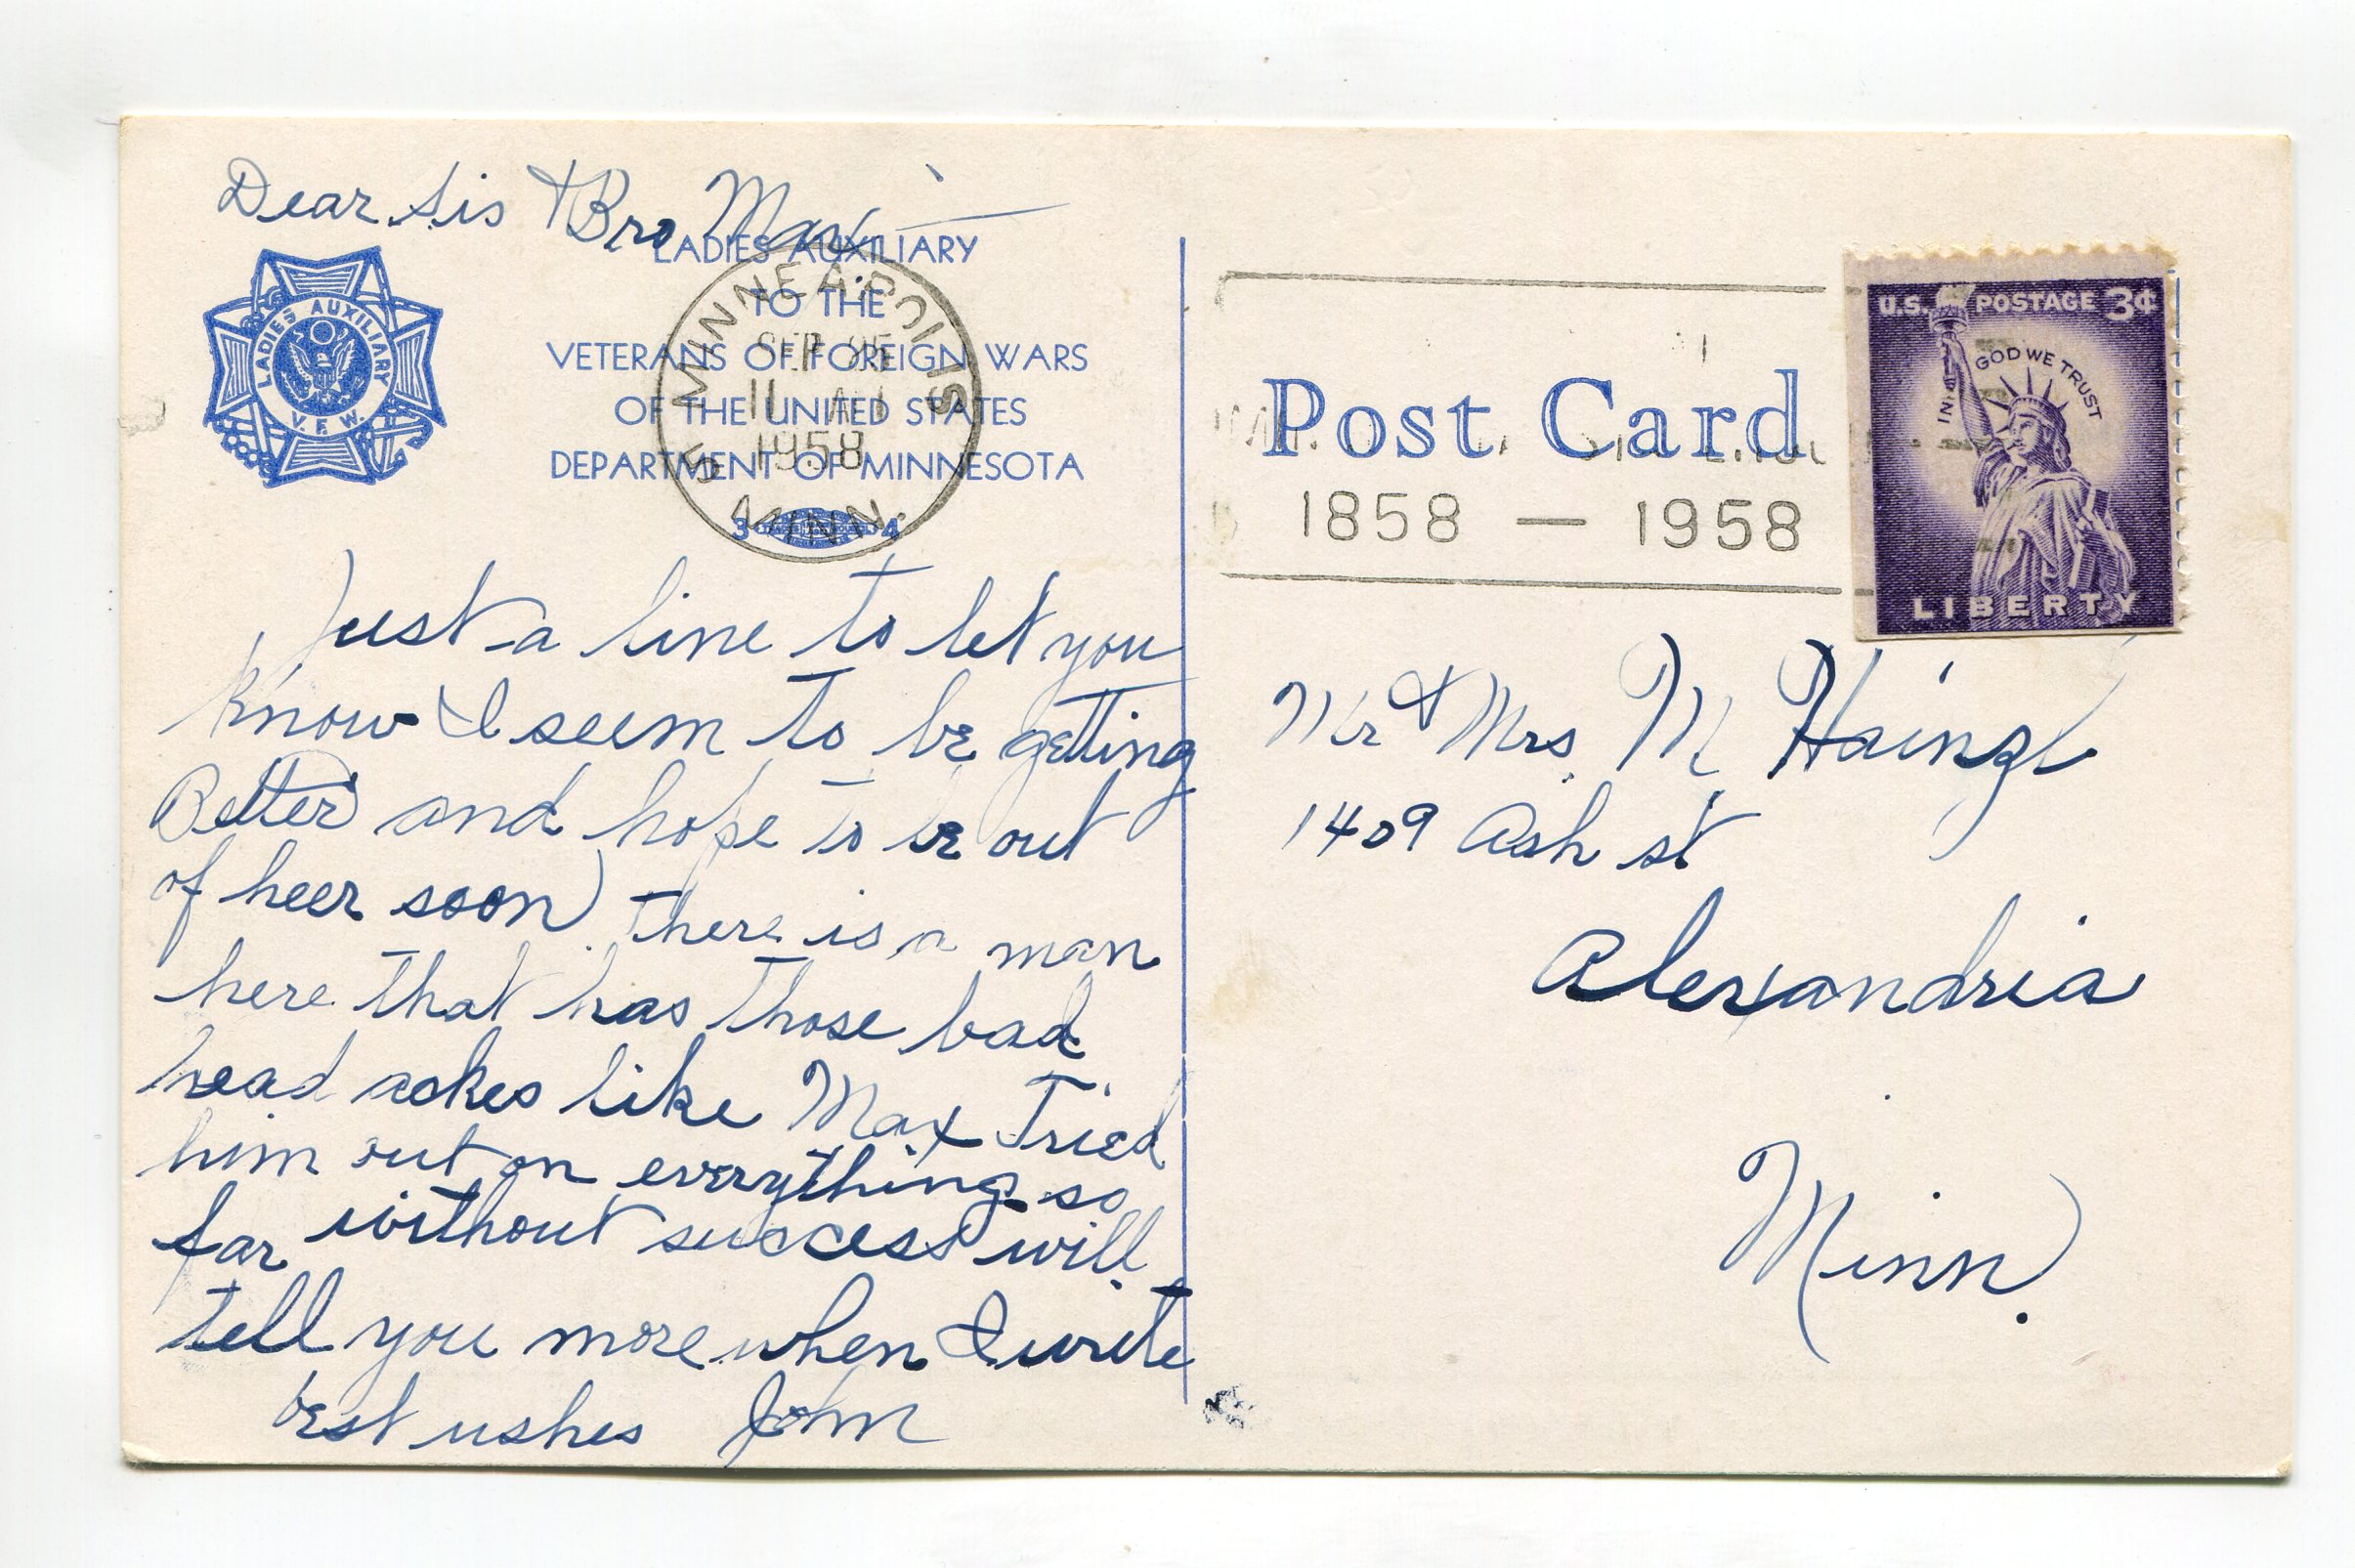 Dear Sis & Bro Max
LADIES AUXILIARY
TO THE
VETERANS OF FOREIGN WARS
OF THE UNITED STATES
DEPARTMENT OF MINNESOTA
LADIES AUXILIARY
V. F. W.
MINNEAPOLIS
SEP 25
11 AM
1958
MINN.
3 4
Just a line to let you
know I seem to be getting
Better and hope to be out
of heer soon there is a man
here that has those bad
head ackes like Max Tried
him out on everything so
far without success will
tell you more when I write
best wshes John
Post Card
1858 — 1958
U.S. POSTAGE 3¢
IN GOD WE TRUST
LIBERTY
Mr & Mrs M Hainzl
1409 Ash st
Alexandria
Minn.